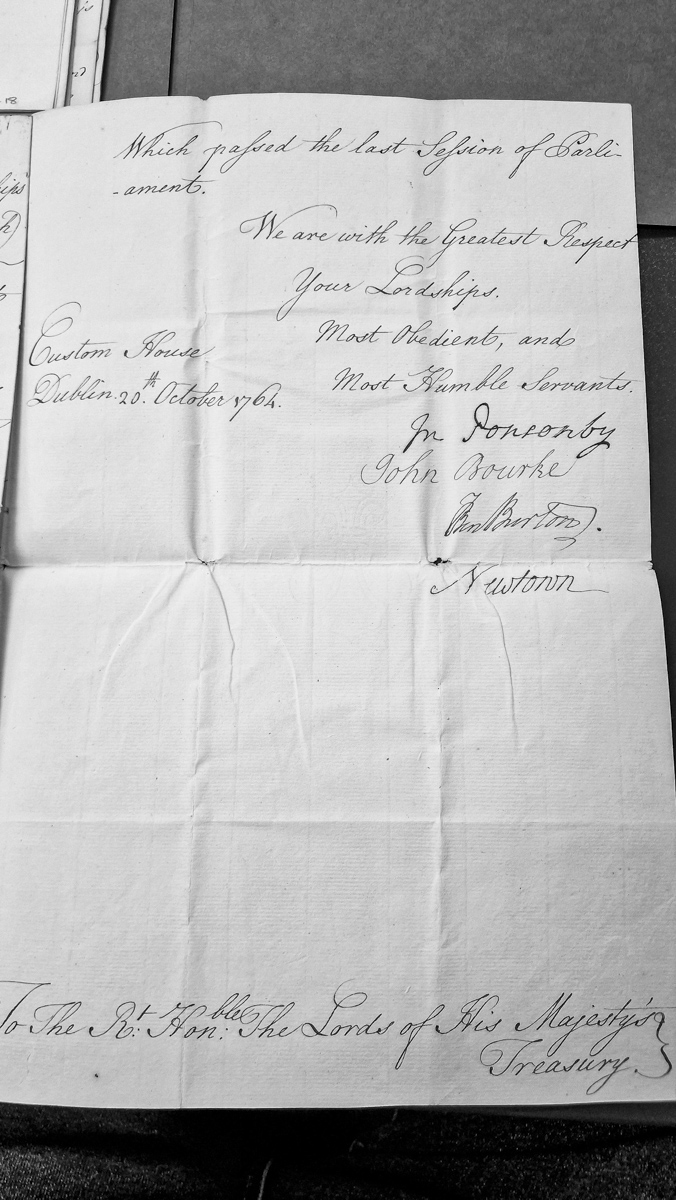 Which passed the last Session of Parli-
-ament.
We are with the Greatest Respect
Your Lordships.
Most Obedient, and
Most Humble Servants.
Custom House
Dublin. 20.th October 1764.
Jn Ponsonby
John Bourke
Ben Burton.
Newtown
To The Rt. Honble. The Lords of His Majesty's
Treasury.